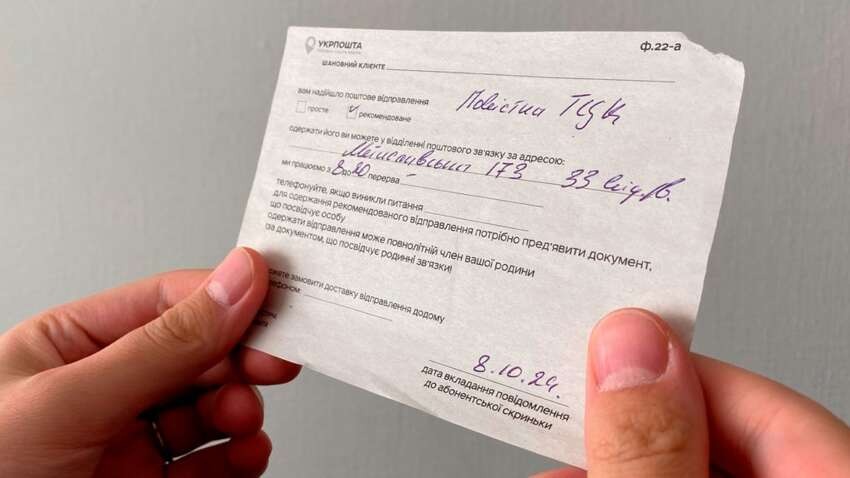 УКРПОШТА
ф.22-а
ШАНОВНИЙ КЛІЄНТЕ
вам надійшло поштове відправлення
Повістка ТЦК
просте
рекомендоване
одержати його ви можете у відділенні поштового зв'язку за адресою:
173 33
ми працюємо з 8 до 20 перерва -
телефонуйте, якщо виникли питання
для одержання рекомендованого відправлення потрібно пред'явити документ,
що посвідчує особу
одержати відправлення може повнолітній член вашої родини
за документом, що посвідчує родинні зв'язки!
замовити доставку відправлення додому
8.10.24.
дата вкладання повідомлення
до абонентської скриньки